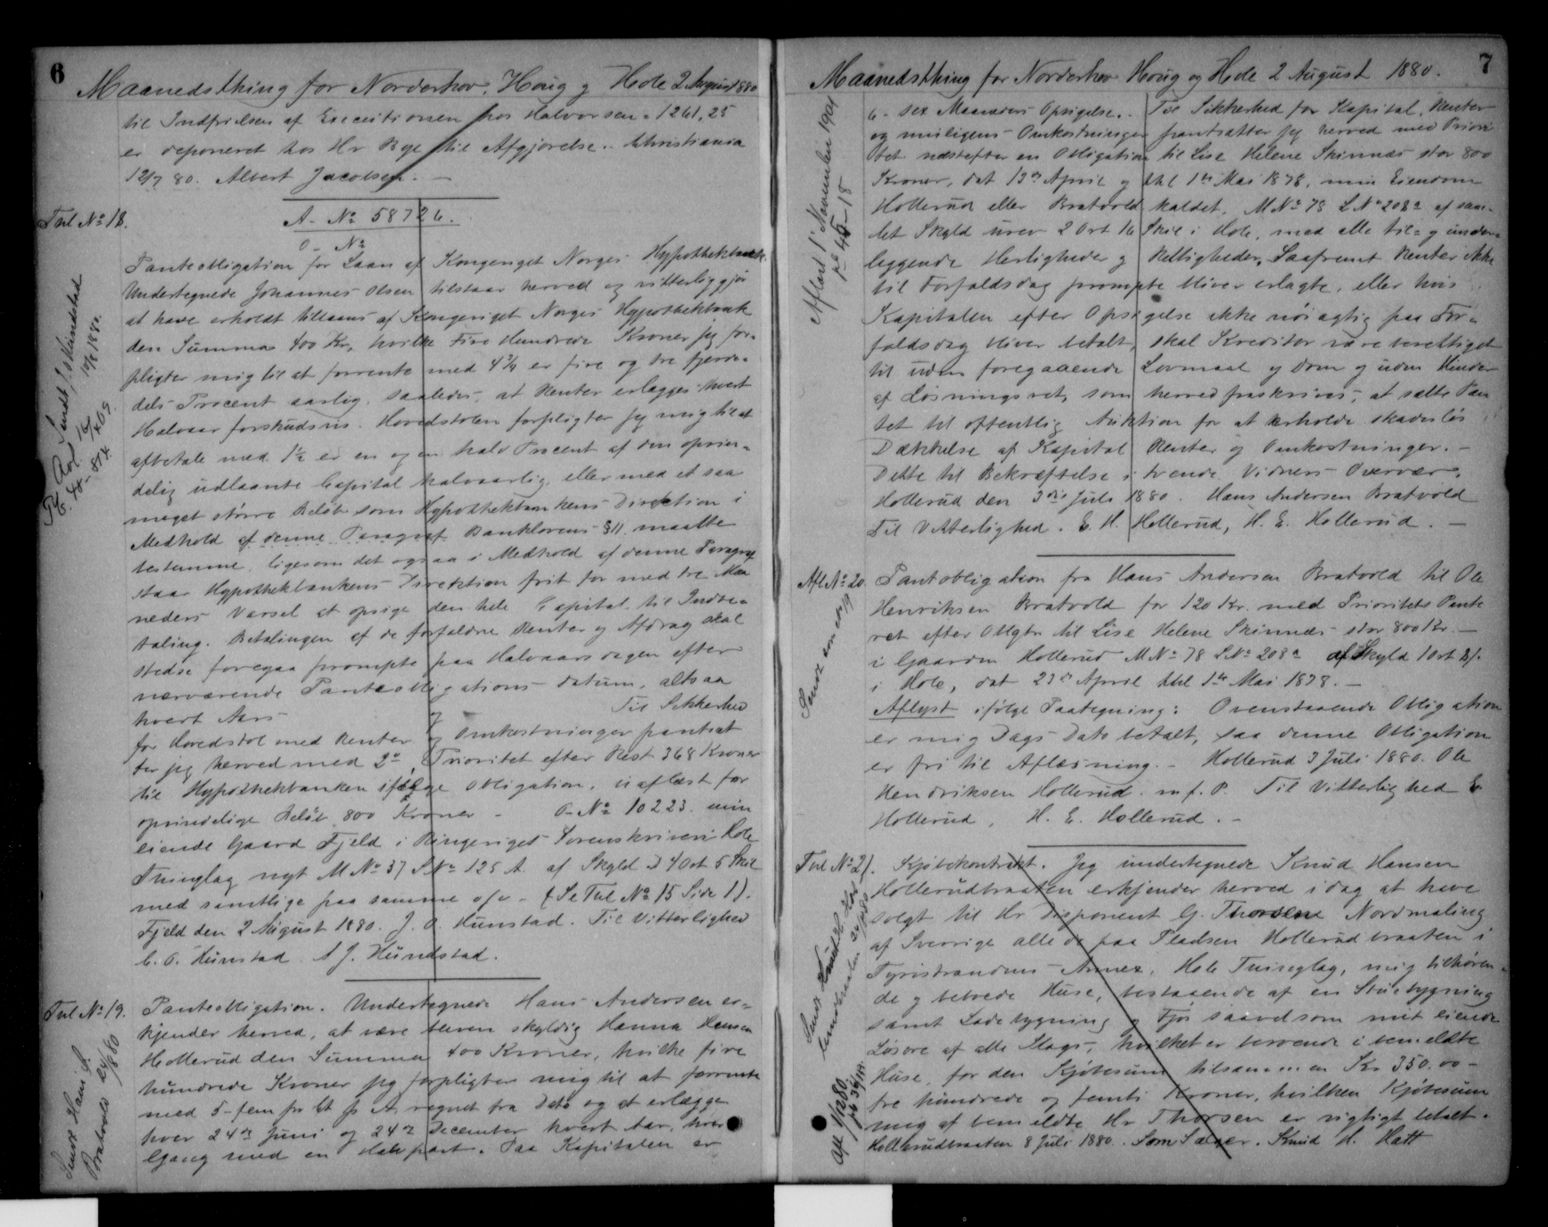 6
Maanedsthing for Norderhov. Houg og Hole 2 August 1880
til Indfrielsen af Executionen hos Halvorsen - 1261,25
er deponeret hos Hr Bøge til Afgjørelse. - Christiania
12/7 80. Albert Jacobsen. -
Tnl No 18.
A - No 58726.
O - No
Panteobligation for Laan af Kongeriget Norges Hypothekbank.
Undertegnede Johannes Olsen tilstaar herved og vitterliggjør
at have erholdt tillaans af Kongeriget Norges Hypothekbank
den Summa 400 Kr, hvilke Fire Hundrede Kroner jeg for-
pligter mig til at forrente med 4 3/4 er fire og tre fjerde-
dels Procent aarlig, saaledes, at Renter erlægges hvert
Halvaar forskudsvis. Hovedstolen forpligter jeg mig til at
afbetale med 1 1/2 er en og en halv Procent af den oprin-
delig udlaante Capital halvaarlig eller med et saa
meget større Beløb som Hypothekbankens Direction i
Medhold af denne Paragraf Banklovens § 11. maatte
bestemme, ligesom det ogsaa i Medhold af denne Paragraf
staar Hypothekbankens Direktion frit for med tre Maa
neders Varsel at opsige den hele Capital til Indbe-
taling. Betalingen af de forfaldne Renter og Afdrag skal
stedse foregaa prompte paa Halvaarsdagen efter
nærværende Panteobligations datum, altsaa
hvert Aars   og   Til Sikkerhed
for Hovedstol med Renter og Omkostninger pantsæt
ter jeg herved med 2den Prioritet efter Rest 368 Kroner
til Hypothekbanken ifølge Obligation, uaflæst for
oprindelige Beløb 800 Kroner - O - No 10223. min
eiende Gaard Fjeld i Ringeriges Sorenskriveri Hole
Thinglag nyt M No 37 L No 125 A af Skyld D 4 Ort 5 Skil
med samtlige paa samme o/v - (Se Tnl No 15 Side 1).
Fjeld den 2 August 1880. J. O. Hunstad. Til Vitterlighed
C. O. Hunstad. A J. Hundstad.
Tnl No 19.
Panteobligation. Undertegnede Hans Andersen er-
kjender herved, at være bleven skyldig Hanna Hansen
Hollerud den Summa 400 Kroner, hvilke fire
hundrede Kroner jeg forpligter mig til at forrente
med 5 - fem pr Ct p A. regnet fra Dato og at erlægge
hver 24de Juni og 24de December hvert Aar, hver
Gang med en Halvpart. Paa Kapitalen er
Sendt Hans A.
Bratvold 24/8 80
7
Maanedsthing for Norderhov Houg og Hole 2 August 1880.
6 - sex Maaneders Opsigelse. - Til Sikkerhed for Kapital, Renter
og muligens Omkostninger pantsætter jeg herved med Priori
tet næstefter en Obligation til Lise Helene Skinnes stor 800
Kroner, dat 13de April og thl 1ste Mai 1878, min Eiendom
Hollerud eller Bratvold kaldet, M No 78 L No 208a af sam-
let Skyld urev. 2 Ort 16 Skil i Hole, med alle til- og under-
liggende Herligheder og Rettigheder. Saafremt Renter ikke
til Forfaldsdag prompte bliver erlagte, eller hvis
Kapitalen efter Opsigelse ikke nøiagtig paa For-
faldsdag bliver betalt, skal Kreditor være berettiget
til uden foregaaende Lovmaal og Dom og uden Hinder
af Løsningsret, som herved fraskrives, at sætte Pan
tet til offentlig Auktion for at erholde skadesløs
Dækkelse af Kapital Renter og Omkostninger. -
Dette til Bekræftelse i tvende Vidners Overvær.
Hollerud den 3die Juli 1880. Hans Andersen Bratvold
Til Vitterlighed. E. H. Hollerud, H. E. Hollerud. -
Aflæst 1 November 1901
Afl No 20.
Pantobligation fra Hans Andersen Bratvold til Ole
Henriksen Bratvold for 120 Kr. med Prioritets Pante
ret efter Obligtn til Lise Helene Skinnes stor 800 Kr. -
i Gaarden Hollerud M No 78 L No 208a af Skyld 1 Ort
i Hole, dat 23de April thl 1ste Mai 1878. -
Aflyst ifølge Paategning: Ovenstaaende Obligation
er mig Dags Dato betalt, saa denne Obligation
er fri til Aflæsning. - Hollerud 3 Juli 1880. Ole
Hendriksen Hollerud. m. f. P. Til Vitterlighed E
Hollerud, H. E. Hollerud. -
Tnl No 21.
Kjøbekontrakt. Jeg undertegnede Knud Hansen
Hollerudbraaten erkjender herved idag at have
solgt til Hr Disponent G. Thorsen Nordmaling
af Sverrige alle de paa Pladsen Hollerudbraaten i
Tyristrandens Annex, Hole Thinglag, mig tilhøren-
de og beboede Huse, bestaaende af en Stuebygning
samt Ladebygning og Fjøs saavelsom mit eiende
Løsøre af alle Slags, hvilket er beroende i bemeldte
Huse, for den Kjøbesum tilsammen Kr 350.00 -
tre hundrede og femti Kroner, hvilken Kjøbesum
mig af bemeldte Hr Thorsen er rigtigt betalt -
Hollerudbraaten 8 Juli 1880. Som Sælger. Knud H. Hatt